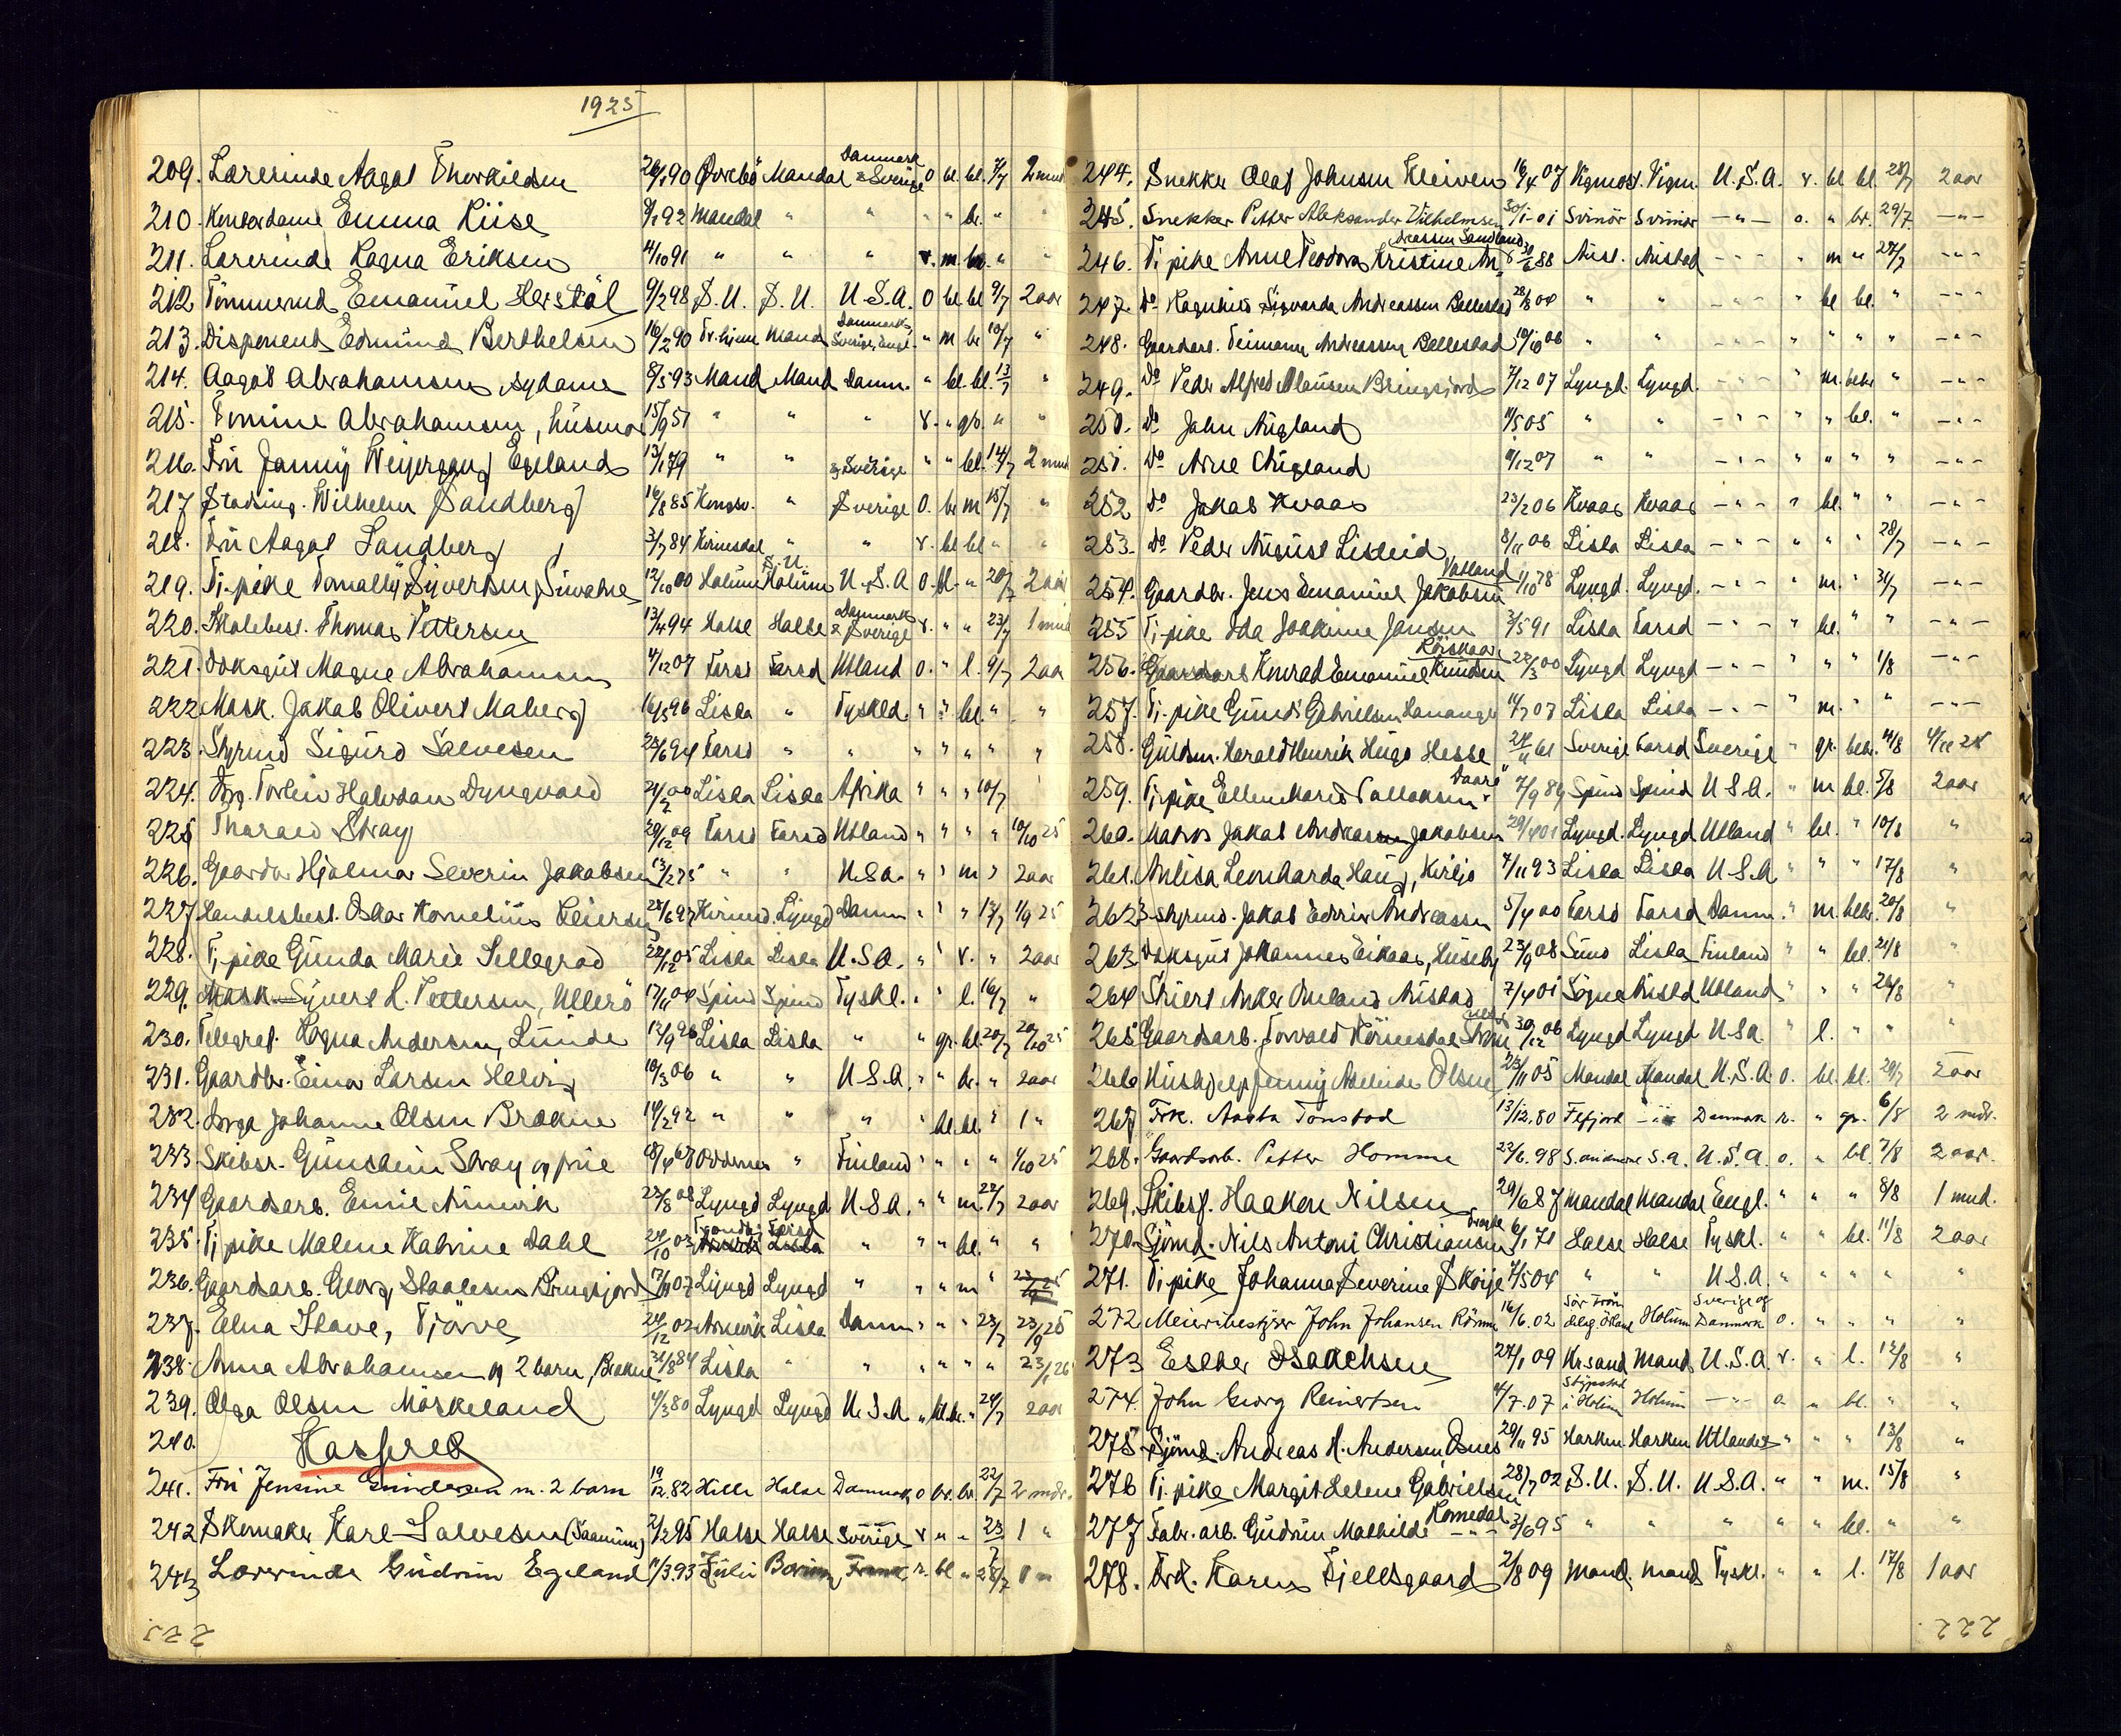 1925
209. Lærerinde Aagot Thorkildsen 26/1 90 Øvrebö Mandal Danmark & Sverige o bl. bl. 7/7 2 mnd
210. Kontordame Emma Kiise 9/1 92 Mandal " " " " br. " "
211. Lærerinde Ragna Eriksen 4/10 91 " " " r. m. br. " "
212. Tömmermd Emanuel Herstöl 9/2 98 S. U. S. U. U.S.A. o bl bl 9/7 2 aar
213. Disponent Edmund Berthelsen 16/2 90 Tr.hjem Mand Danmark, Sverige, Engl. " m br 10/7 "
214. Aagot Abrahamsen, sydame 8/5 93 Mand Mand Danm. " bl. bl. 13/7 "
215. Tomine Abrahamsen, husmor 15/9 51 " " " r. " gr. " "
216. Fru Janny Weyergang Egeland 13/1 79 " " & Sverige " " bl. 14/7 2 mnd
217. Stadsing. Wilhelm Sandberg 16/8 85 Kongsv. " Sverige o. br m 15/7 "
218. Fru Aagot Sandberg 3/7 84 Kvinesdal " " r. bl bl " "
219. Ti. pike Tomally Syvertsen Sivatne 12/10 00 Holum S.U. Holum U.S.A o. bl. " 20/7 2 aar
220. Skolebest. Thomas Pettersen 13/4 94 Halse Halse Danmark & Sverige r. " " 23/7 1 mnd
221. Dæksgut Magne Abrahamsen 4/12 07 Farsd Farsd Utland o. " l. 9/7 2 aar
222. Mask. Jakob Olivert Maberg 16/5 96 Lista " Tyskld. " " bl. " "
223. Styrmd Sigurd Salvesen 22/6 94 Farsd " " " " " " "
224. Torleiv Halvdan Dyngvold 21/2 00 Lista Lista Afrika " " " 10/7
225 Tharald Stray 20/12 09 Farsd Farsd Utland " " " " 10/10 25
226. Gaardbr Hjalmar Severin Jakobsen 13/2 75 " " U.S.a. " " m " 2 aar
227. Handelsbest. Oskar Kornelius Reiersen 25/6 97 Kvinesd. Lyngd Danm " " " 13/7 1/9 25
228. Ti. pike Gunda Marie Sellegrod 22/12 05 Lista Lista U.S.A. " " r. " 2 aar
229. Mask. Syvert L. Pettersen, Ullerö 17/11 04 Spind Spind Tyskl. " " l. 16/7 "
230. Telegraf. Ragna Andersen, Lunde 12/9 96 Lista Lista " " gr. bl. 20/7 20/10 25
231. Gaardbr. Einar Larsen Helvig 10/3 06 " " U.S.A. " " br. " 2 aar
232. Borga Johanne Olsen Brække 14/2 92 " " " " bl. bl. " 1 "
233. Skibsr. Gunstein Stray og frue 18/4 67 Oddernes " Finland " " " " 1/10 25
234 Gaardsarb. Emil Aunevik 22/8 08 Lyngd Lyngd U.S.A. " " m. 22/7 2 aar
235. Ti. pike Malene Katrine Dahl 24/10 03 Trondhj. Farsd " " " bl. " "
236. Gaardsarb. Georg Staalesen Bringsjord 17/11 07 Lyngd Lyngd " " " m "
237. Edna Stave, Tjörve 24/12 02 Lista Danm " " " 23/7 23/9 25
238. Anna Abrahamsen og 2 barn, Brække 31/8 84 Lista " " " " " " 23/1 26
239. Olga Olsen Möskeland 4/3 80 Lyngd Lyngd U.S.A. " bl. br. " 24/7 2 aar
240. Kassert
241. Fru Jensine Gundersen m. 2 barn 19/12 82 Hille Halse Danmark o br. br. 22/7 2 mdr.
242. Skomaker Karl Salvesen (Saanum) 2/2 95 Halse Halse Sverige r " " 23/7 1 "
243 Lærerinde Gudrun Egeland 1/3.93 r. bl " 28/7
223.
244. Snekker Olaf Johnsen Kleiven 16/4 07 Vigmost. Vigm. U.S.A. r. bl bl. 28/7 2 aar
245. Snekker Petter Aleksander Vilhelmsen 30/1-01 Svinör Svinör —"— o. " br. 29/7. —"—
246. Ti. pike Anne Teodora Kristine Andreassen Sandland 30/6 88 Aust. Austad —"— " m " 27/7 —"—
247. Do Ragnhild Sigvarda Andreassen Rellestad 28/3 04 " " —"— " bl bl. " —"—
248. Gaardarb. Teimann Andreassen Rellestad 10/10 06 " " —"— " " " " —"—
249. Do Peder Alfred Klausen Bringsjord 7/12 07 Lyngd. Lyngd. —"— " m. blbr " —"—
250. Do John Augland 11/5 05 " " —"— " " bl. " —"—
251. Do Arne Augland 9/12 07 " " —"— " " " " —"—
252. Do Jakob Kvaas 23/2 06 Kvaas Kvaas —"— " bl. " " —"—
253. Do Peder August Listeid 8/11 06 Lista Lista —"— " " " 28/7 —"—
254. Gaardbr. Jens Emanuel Jakobsen Vatland 1/10 78 Lyngd. Lyngd. —"— " m. " 31/7 —"—
255 Ti. pike Ida Joakime Jansen 3/5 91 Lista Farsd —"— " bl. " " —"—
256. Gaardsarb Konrad Emanuel Knudsen Röiskaar 22/3 00 Lyngd Lyngd —"— " " " 1/8 —"—
257. Ti. pike Gundi Gabrielsen Hananger 11/7 07 Lista Lista —"— " m. " " —"—
258. Guldsm. Harald Henrik Hugo Hesse 24/11 61 Sverige Farsd Sverige " gr. blbr. 4/8 4/11 25
259. Ti. pike Ellen Marie Tallaksen Daarö 7/9 89 Spind Spind U S A. " m bl. 5/8 2 aar
260. Matros Jakob Andreassen Jakobsen 29/4 01 Lyngd. Lyngd Utland " bl. " 10/8 "
261. Anlisa Leonharda Haug, Kirljo 7/11 93 Lista Lista U.S.A " " " 17/8 "
262 3. styrmd. Jakob Edvin Andreassen 5/4 00 Farsd Farsd Danm. " m. blbr. 20/8 "
263 Dæksgut Johannes Eikaas, Huseby 23/9 08 Sund Lista Finland " " bl. 21/8 "
264 Skiert Anker Omland Austad 7/4 01 Sögne Austd. Utland " " " 26/8 "
265 Gaardsarb. Torvald 30/12 06 Lyngd Lyngd U S a. " l. " " "
266 Hushjelp Jenny Adeleide Olsen 23/11 05 Mandal Mandal U.S.A o. bl. bl. 29/7 2 aar
267 Frk. Aasta Tonstad 13/12.80 Fl.fjord —"— Danmark r. " gr. 6/8 2 mdr.
268. Gaardsarb. Petter Homme 22/6.98 S. audnedal S.a. U.S.A. o. " bl. 7/8 2 aar.
269. Skibsf. Haakon Nilsen 29/6 87 Mandal Mandal Engl. " " " 8/8 1 mnd.
270. Sjömd. Nils Antoni Christiansen 6/1 71 Halse Halse Tyskl. " " bl. 11/8 2 aar
271. Ti. pike Johanna Severine Skoije 7/5 04 " " U.S.A. " " " " "
272 Meieribestyrer John Johansen Römme 16/6.02 Holum Sverige og Danmark o. " " " "
273 Esther Isaachsen 27/1 09 Kr.sand Mand U.S.A. r. " l. 12/8 "
274. John Georg Reinertsen 4/7.07 i Holum Holum —"— o. " bl. " "
275 Sjömd. Andreas H. Andersen, Osnes 29/11 95 Harkm. Harkm Utlandet " " " 13/8 "
276 Ti. pike Margit Helene Gabrielsen 28/7 02 S.U. S.U. U.S.A. " " m. 15/8 "
277 Fabr. arb. Gudrun Mathilde Homedal —"— 3/6 95 " " " " " bl. " "
278. Frk. Karen Fjeldsgaard 2/8 09 Mand. Mand Tyskl. " " l. 17/8 1 aar
222.